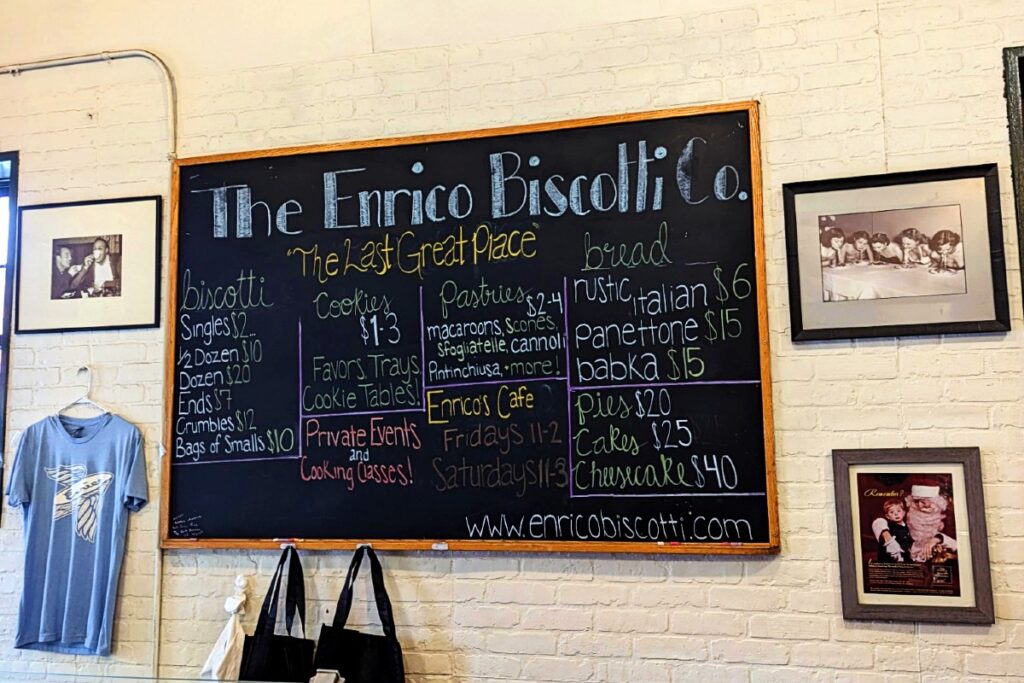 The Enrico Biscotti Co.
"The Last Great Place"
biscotti
Singles $2
½ Dozen $10
Dozen $20
Ends $7
Crumbles $12
Bags of Smalls $10
Cookies
$1-3
Favors, Trays
Cookie Tables!
Private Events
and
Cooking Classes!
Pastries
$2-4
macaroons, scones,
sfogliatelle, cannoli
Pintinchiusa, + more!
Enrico's Cafe
Fridays 11-2
Saturdays 11-3
bread
rustic, italian $6
panettone $15
babka $15
pies $20
Cakes $25
Cheesecake $40
www.enricobiscotti.com
Remember?